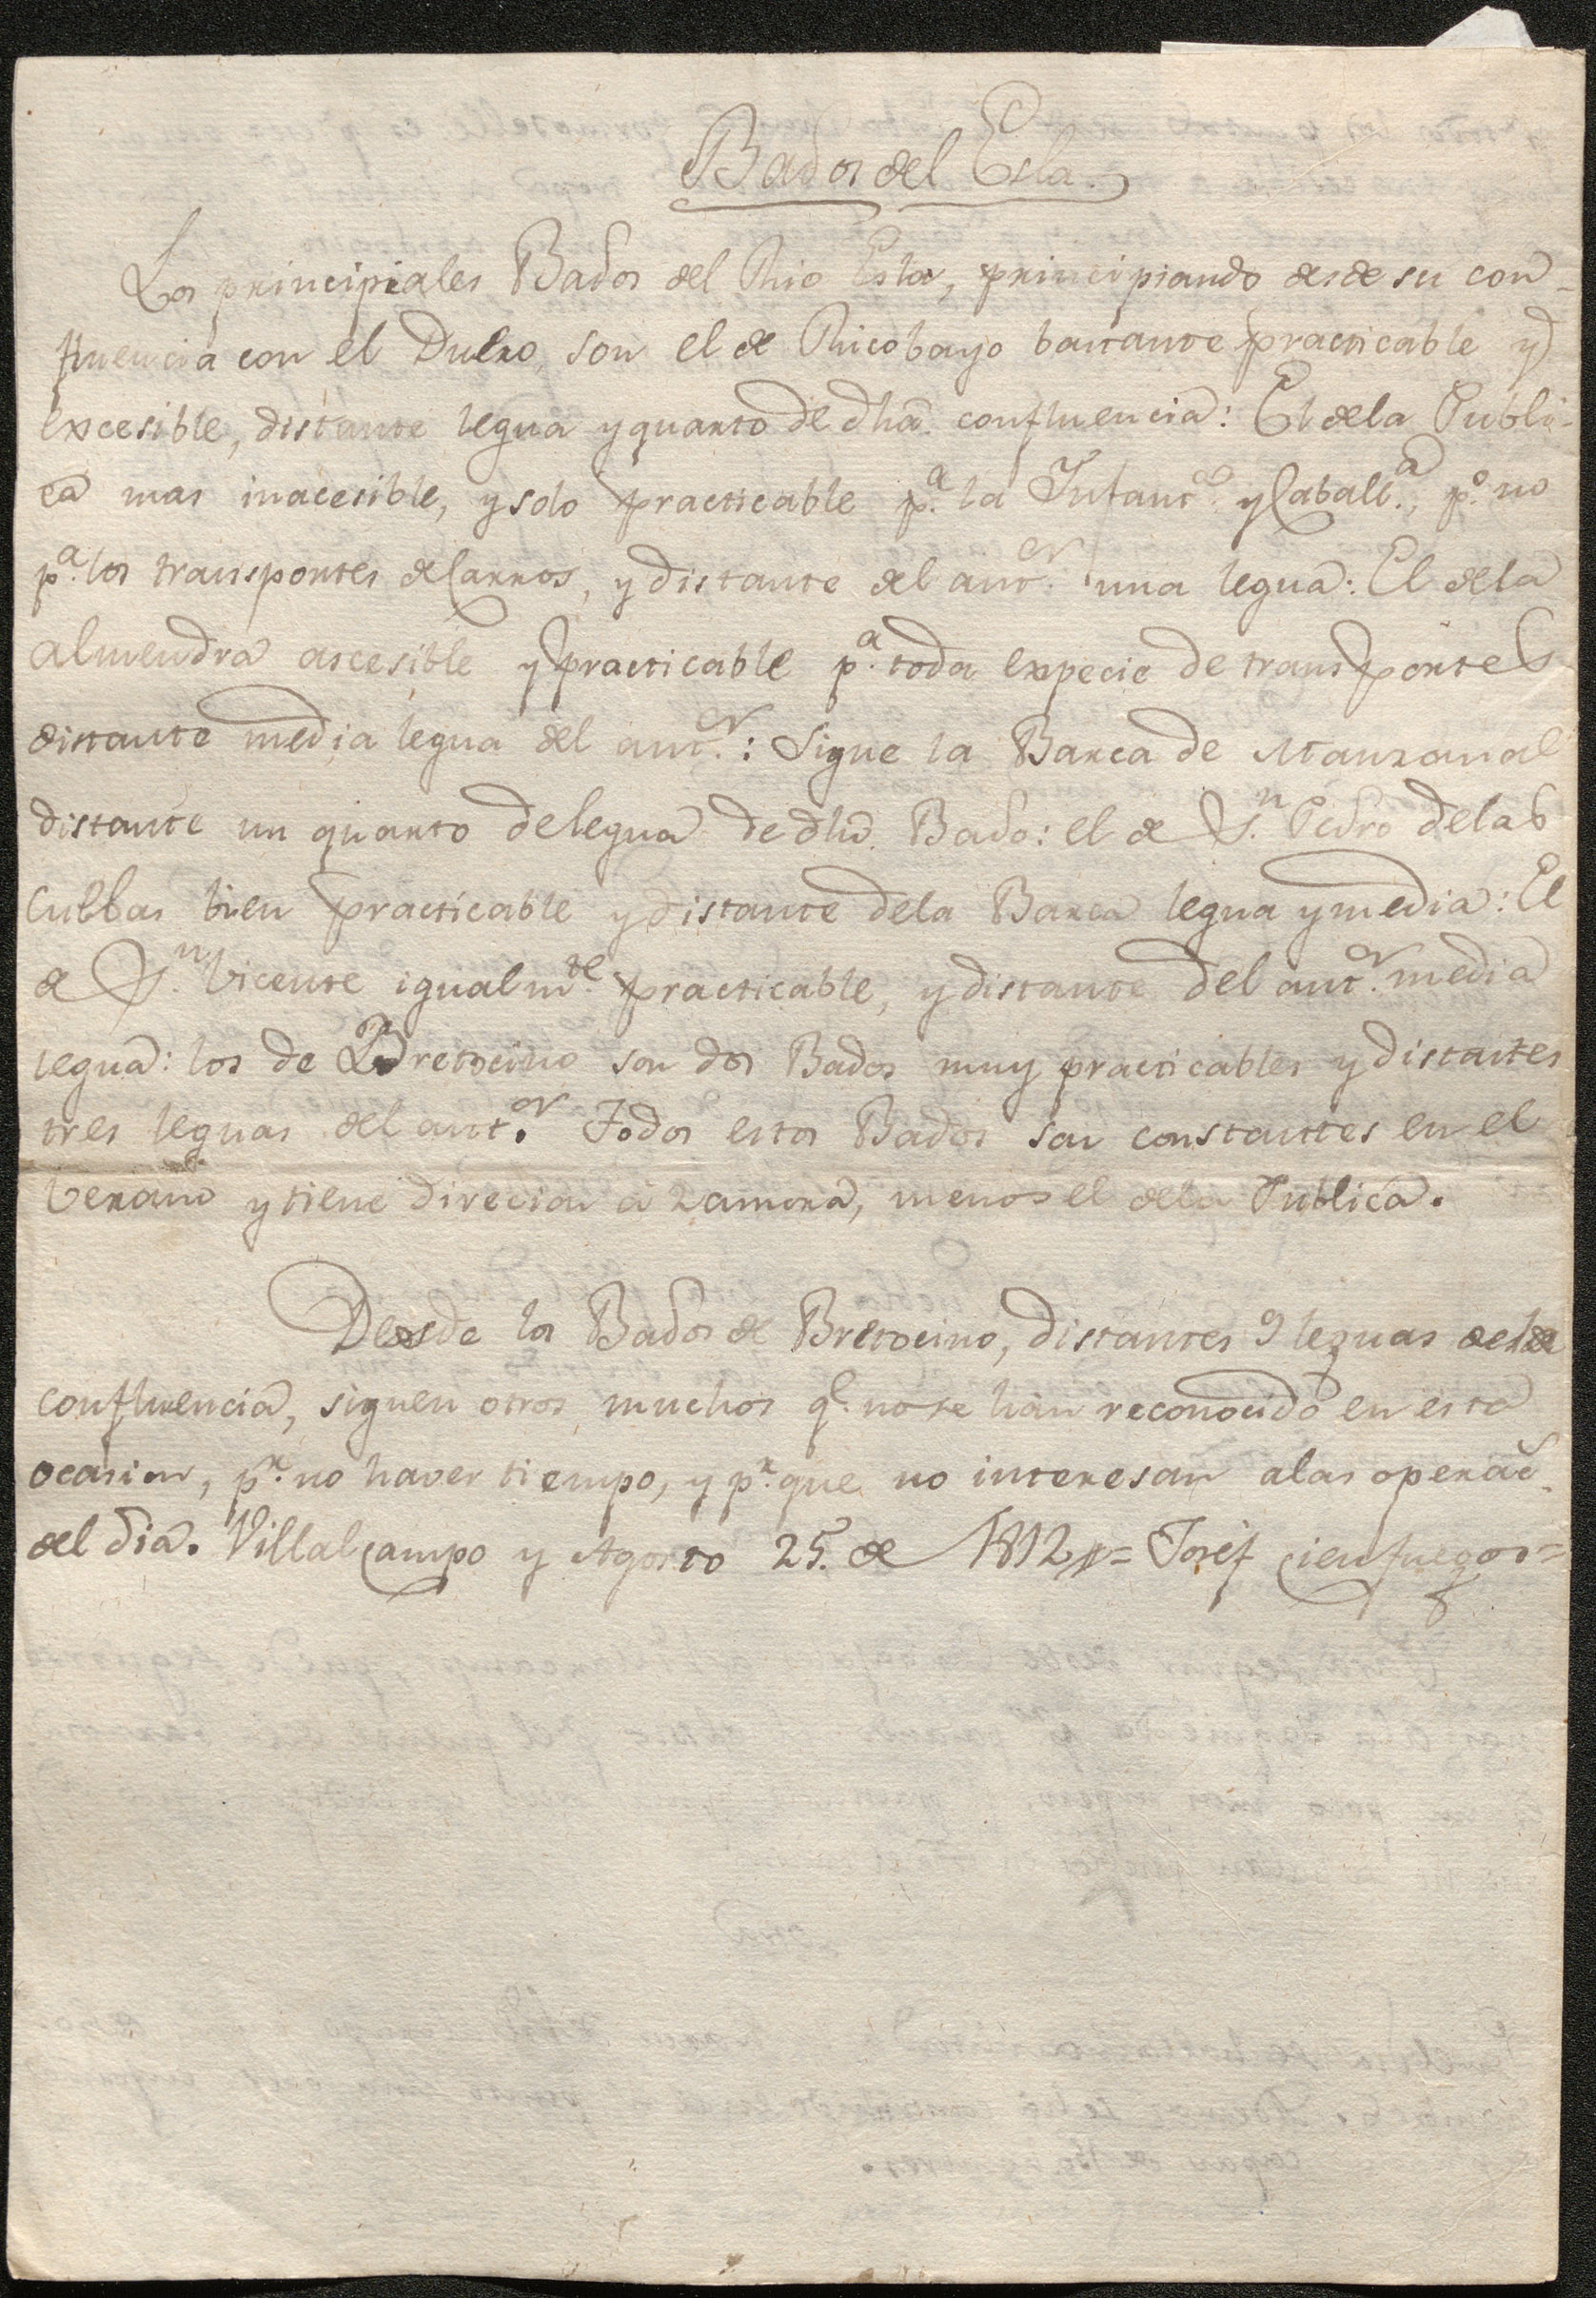 Bados del Esla.
Los principiales Bados del Rio Esla, principiando desde su con-
fluencia con el Duero, son el de Ricobayo bastante practicable y
excesible, distante legua y quarto de dha. confluencia: El de la Publi-
ca mas inacesible, y solo practicable p.ª la Infant.ª y Caball.ª, p.º no
p.ª los transportes de Carros, y distante del ant.or una legua: El de la
almendra ascesible y practicable p.ª toda expecie de transportes
distante media legua del ant.or: Sigue la Barca de Manzanal
distante un quarto de legua de dho. Bado: el de S.n Pedro de las
Cuebas bien practicable y distante de la Barca legua y media: El
de S.n Vicente igualm.te practicable, y distante del ant.or media
legua: los de Bretocino son dos Bados muy practicables y distantes
tres leguas del ant.or Todos estos Bados son constantes en el
berano y tiene direcion a Zamora, menos el de la Publica.
Desde los Bados de Bretocino, distantes 9 leguas de la
confluencia, siguen otros muchos q.e no se han reconocido en esta
ocasion, p.r no haver tiempo, y p.r que no interesan a las operac.
del dia. Villalcampo y Agosto 25. de 1812,,= Josef Cienfuegos=